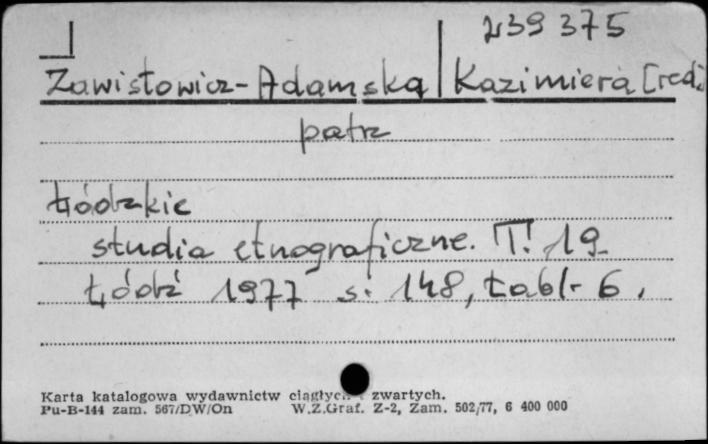 239 375
Zawistowicz-Adamska Kazimiera [red.]
patrz
Łódzkie
studia etnograficzne. T. 19
Łódź 1977 s. 148, tabl. 6.
Karta katalogowa wydawnictw ciągłych i zwartych.
Pu-B-144 zam. 567/DW/On W.Z.Graf. Z-2, Zam. 502/77, 6 400 000